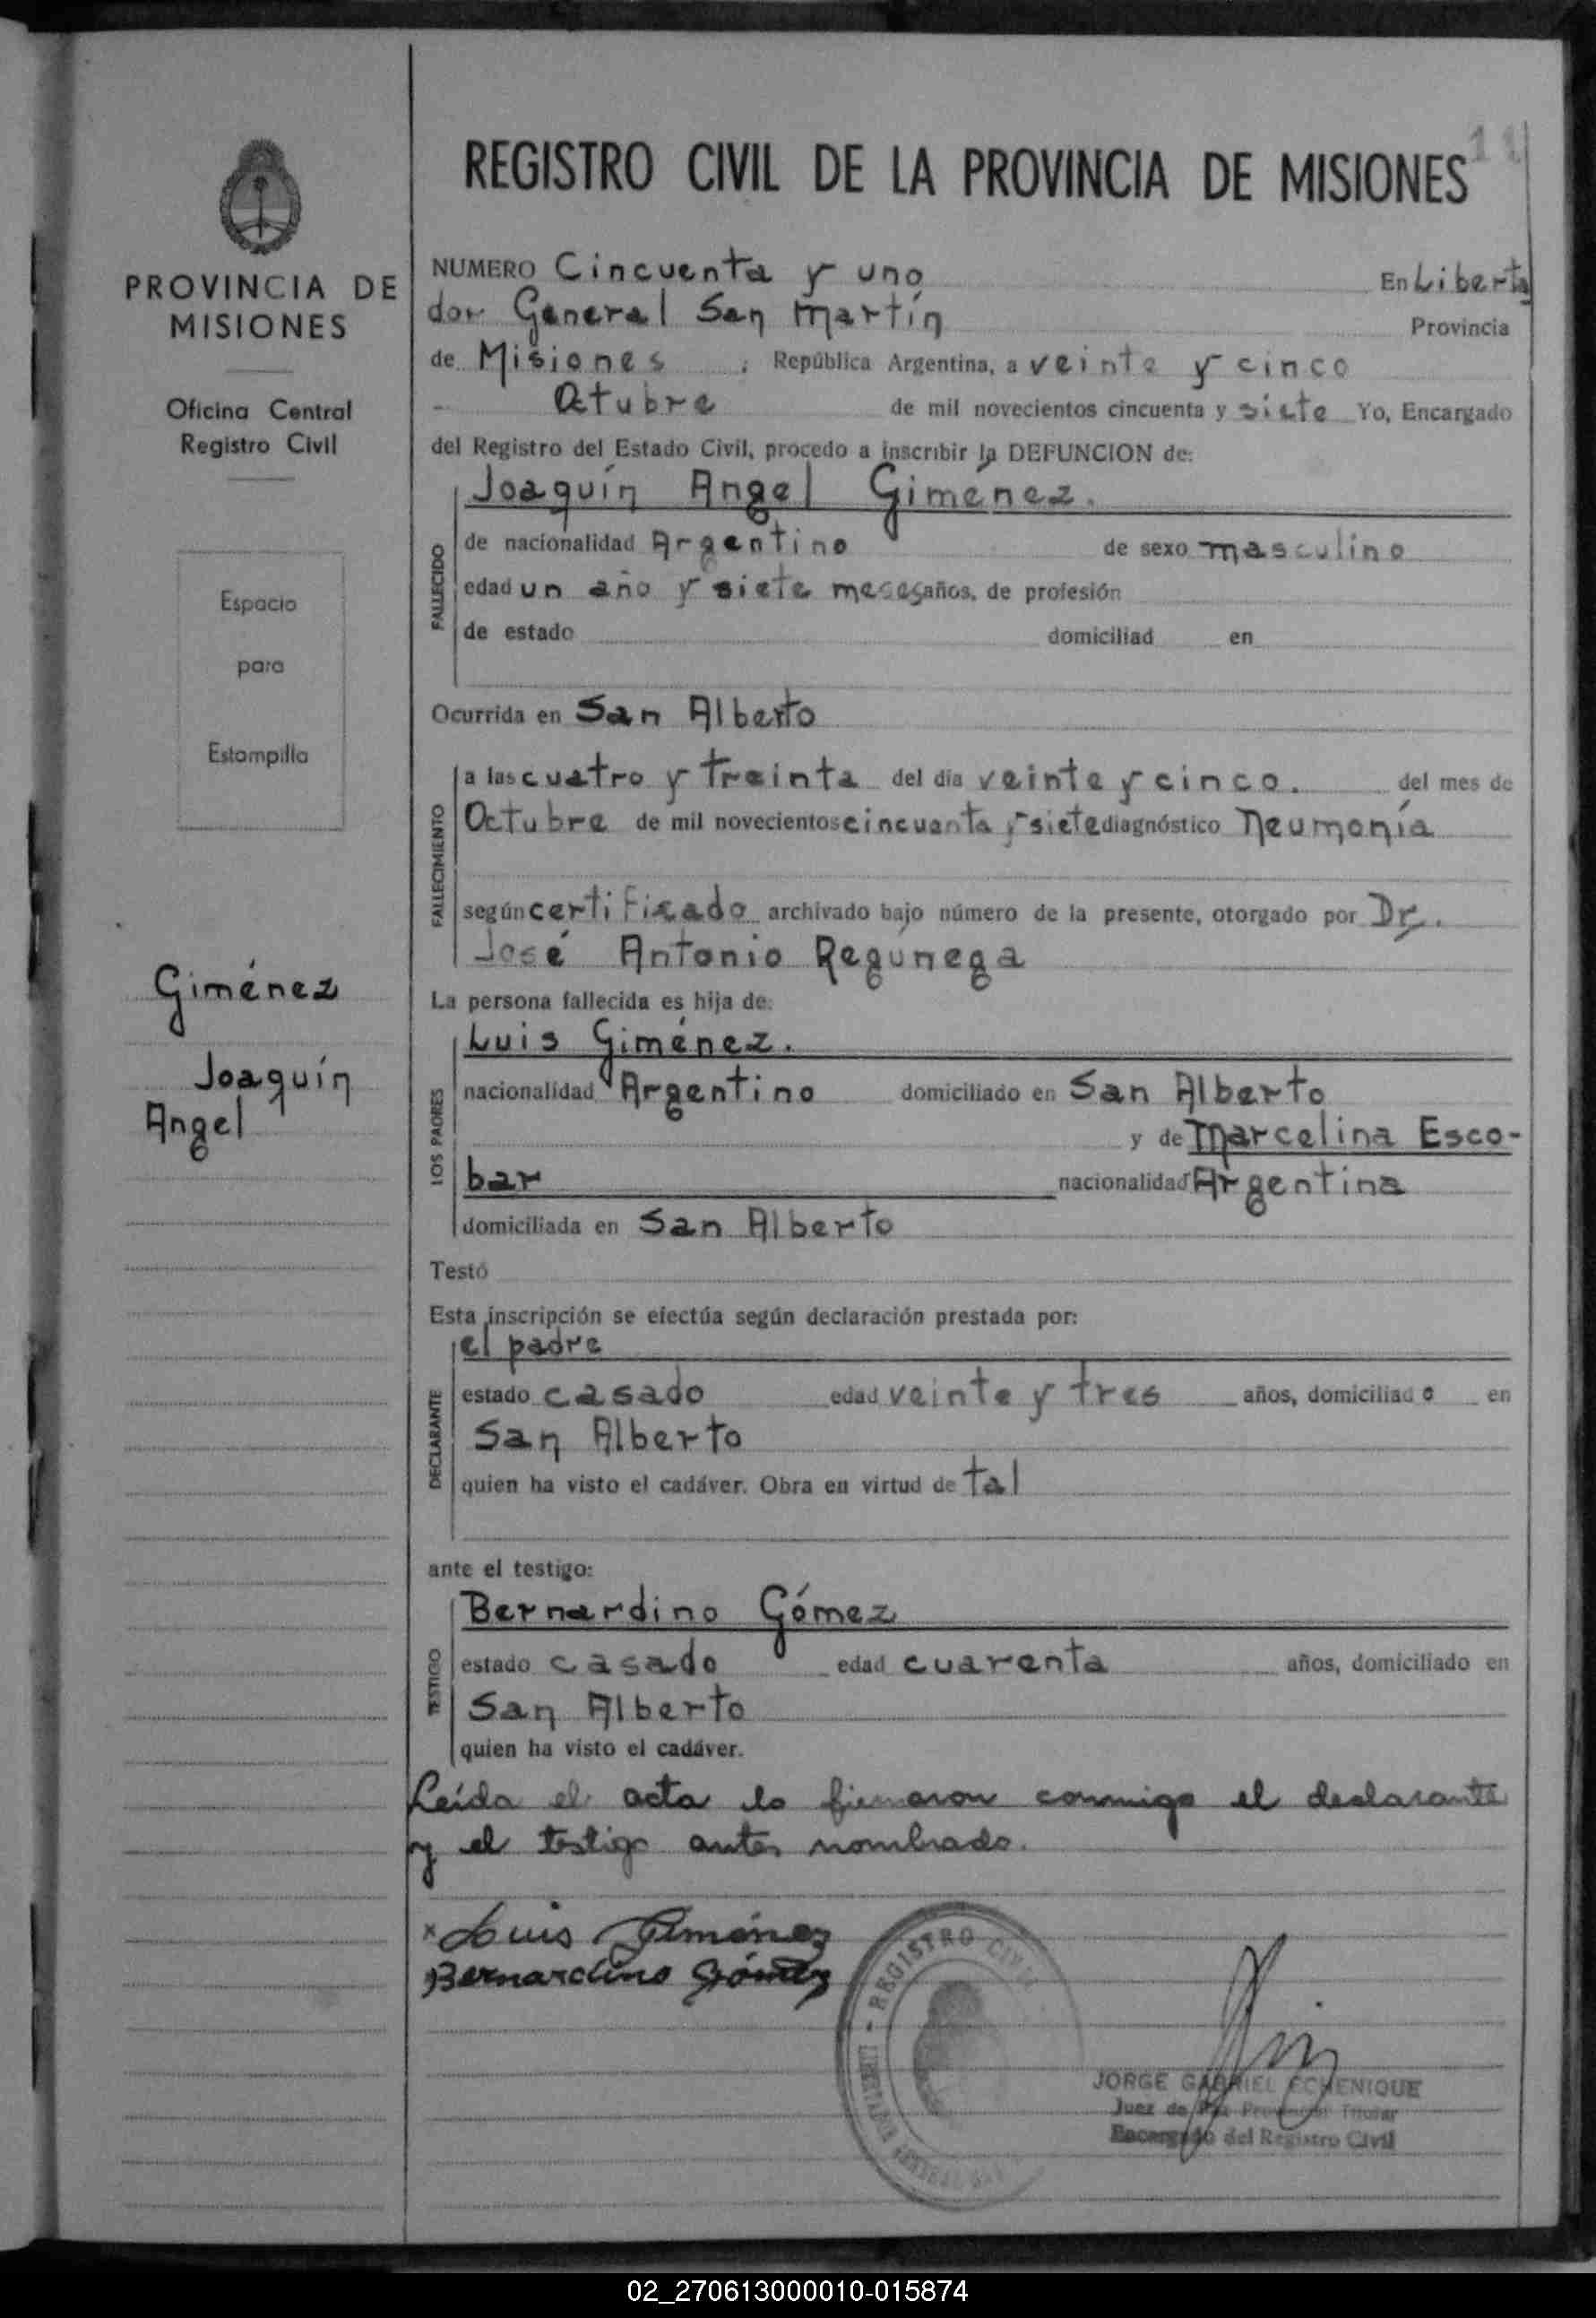 11
REGISTRO CIVIL DE LA PROVINCIA DE MISIONES
PROVINCIA DE
MISIONES
Oficina Central
Registro Civil
Espacio
para
Estampilla
Giménez
Joaquín
Angel
NUMERO Cincuenta y uno En Liberta
dor General San Martín Provincia
de Misiones, República Argentina, a veinte y cinco
Octubre de mil novecientos cincuenta y siete Yo, Encargado
del Registro del Estado Civil, procedo a inscribir la DEFUNCION de:
FALLECIDO
Joaquín Angel Giménez.
de nacionalidad Argentino de sexo masculino
edad un año y siete meses años, de profesión
de estado domiciliad en
Ocurrida en San Alberto
FALLECIMIENTO
a las cuatro y treinta del día veinte y cinco. del mes de
Octubre de mil novecientos cincuenta y siete diagnóstico Neumonía
según certificado archivado bajo número de la presente, otorgado por Dr.
José Antonio Regúnega
La persona fallecida es hija de:
LOS PADRES
Luis Giménez.
nacionalidad Argentino domiciliado en San Alberto
y de Marcelina Esco-
bar nacionalidad Argentina
domiciliada en San Alberto
Testó
Esta inscripción se efectúa según declaración prestada por:
DECLARANTE
el padre
estado casado edad veinte y tres años, domiciliado en
San Alberto
quien ha visto el cadáver. Obra en virtud de tal
ante el testigo:
TESTIGO
Bernardino Gómez
estado casado edad cuarenta años, domiciliado en
San Alberto
quien ha visto el cadáver.
Leída el acta la firmaron conmigo el declarante
y el testigo antes nombrado.
x Luis Giménez
Bernardino Gómez
REGISTRO CIVIL
JORGE GABRIEL ECHENIQUE
Juez de Paz Provincial Titular
Encargado del Registro Civil
02_270613000010-015874